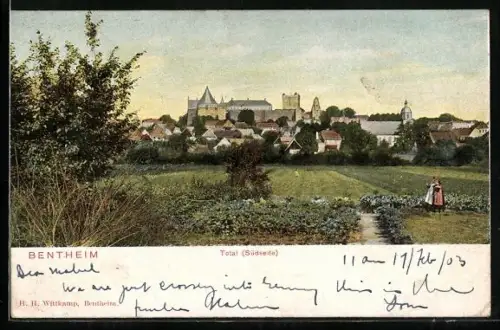 BENTHEIM
Total (Südseite)
11 am 17/Feb/03
Dear Mabel
We are just crossing into Germany this is the
H. H. Wittkamp, Bentheim.
Tom